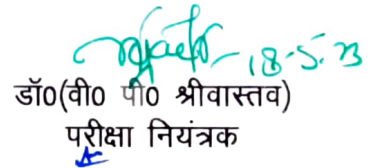 18-5-23
डॉ0(वी0 पी0 श्रीवास्तव)
परीक्षा नियंत्रक